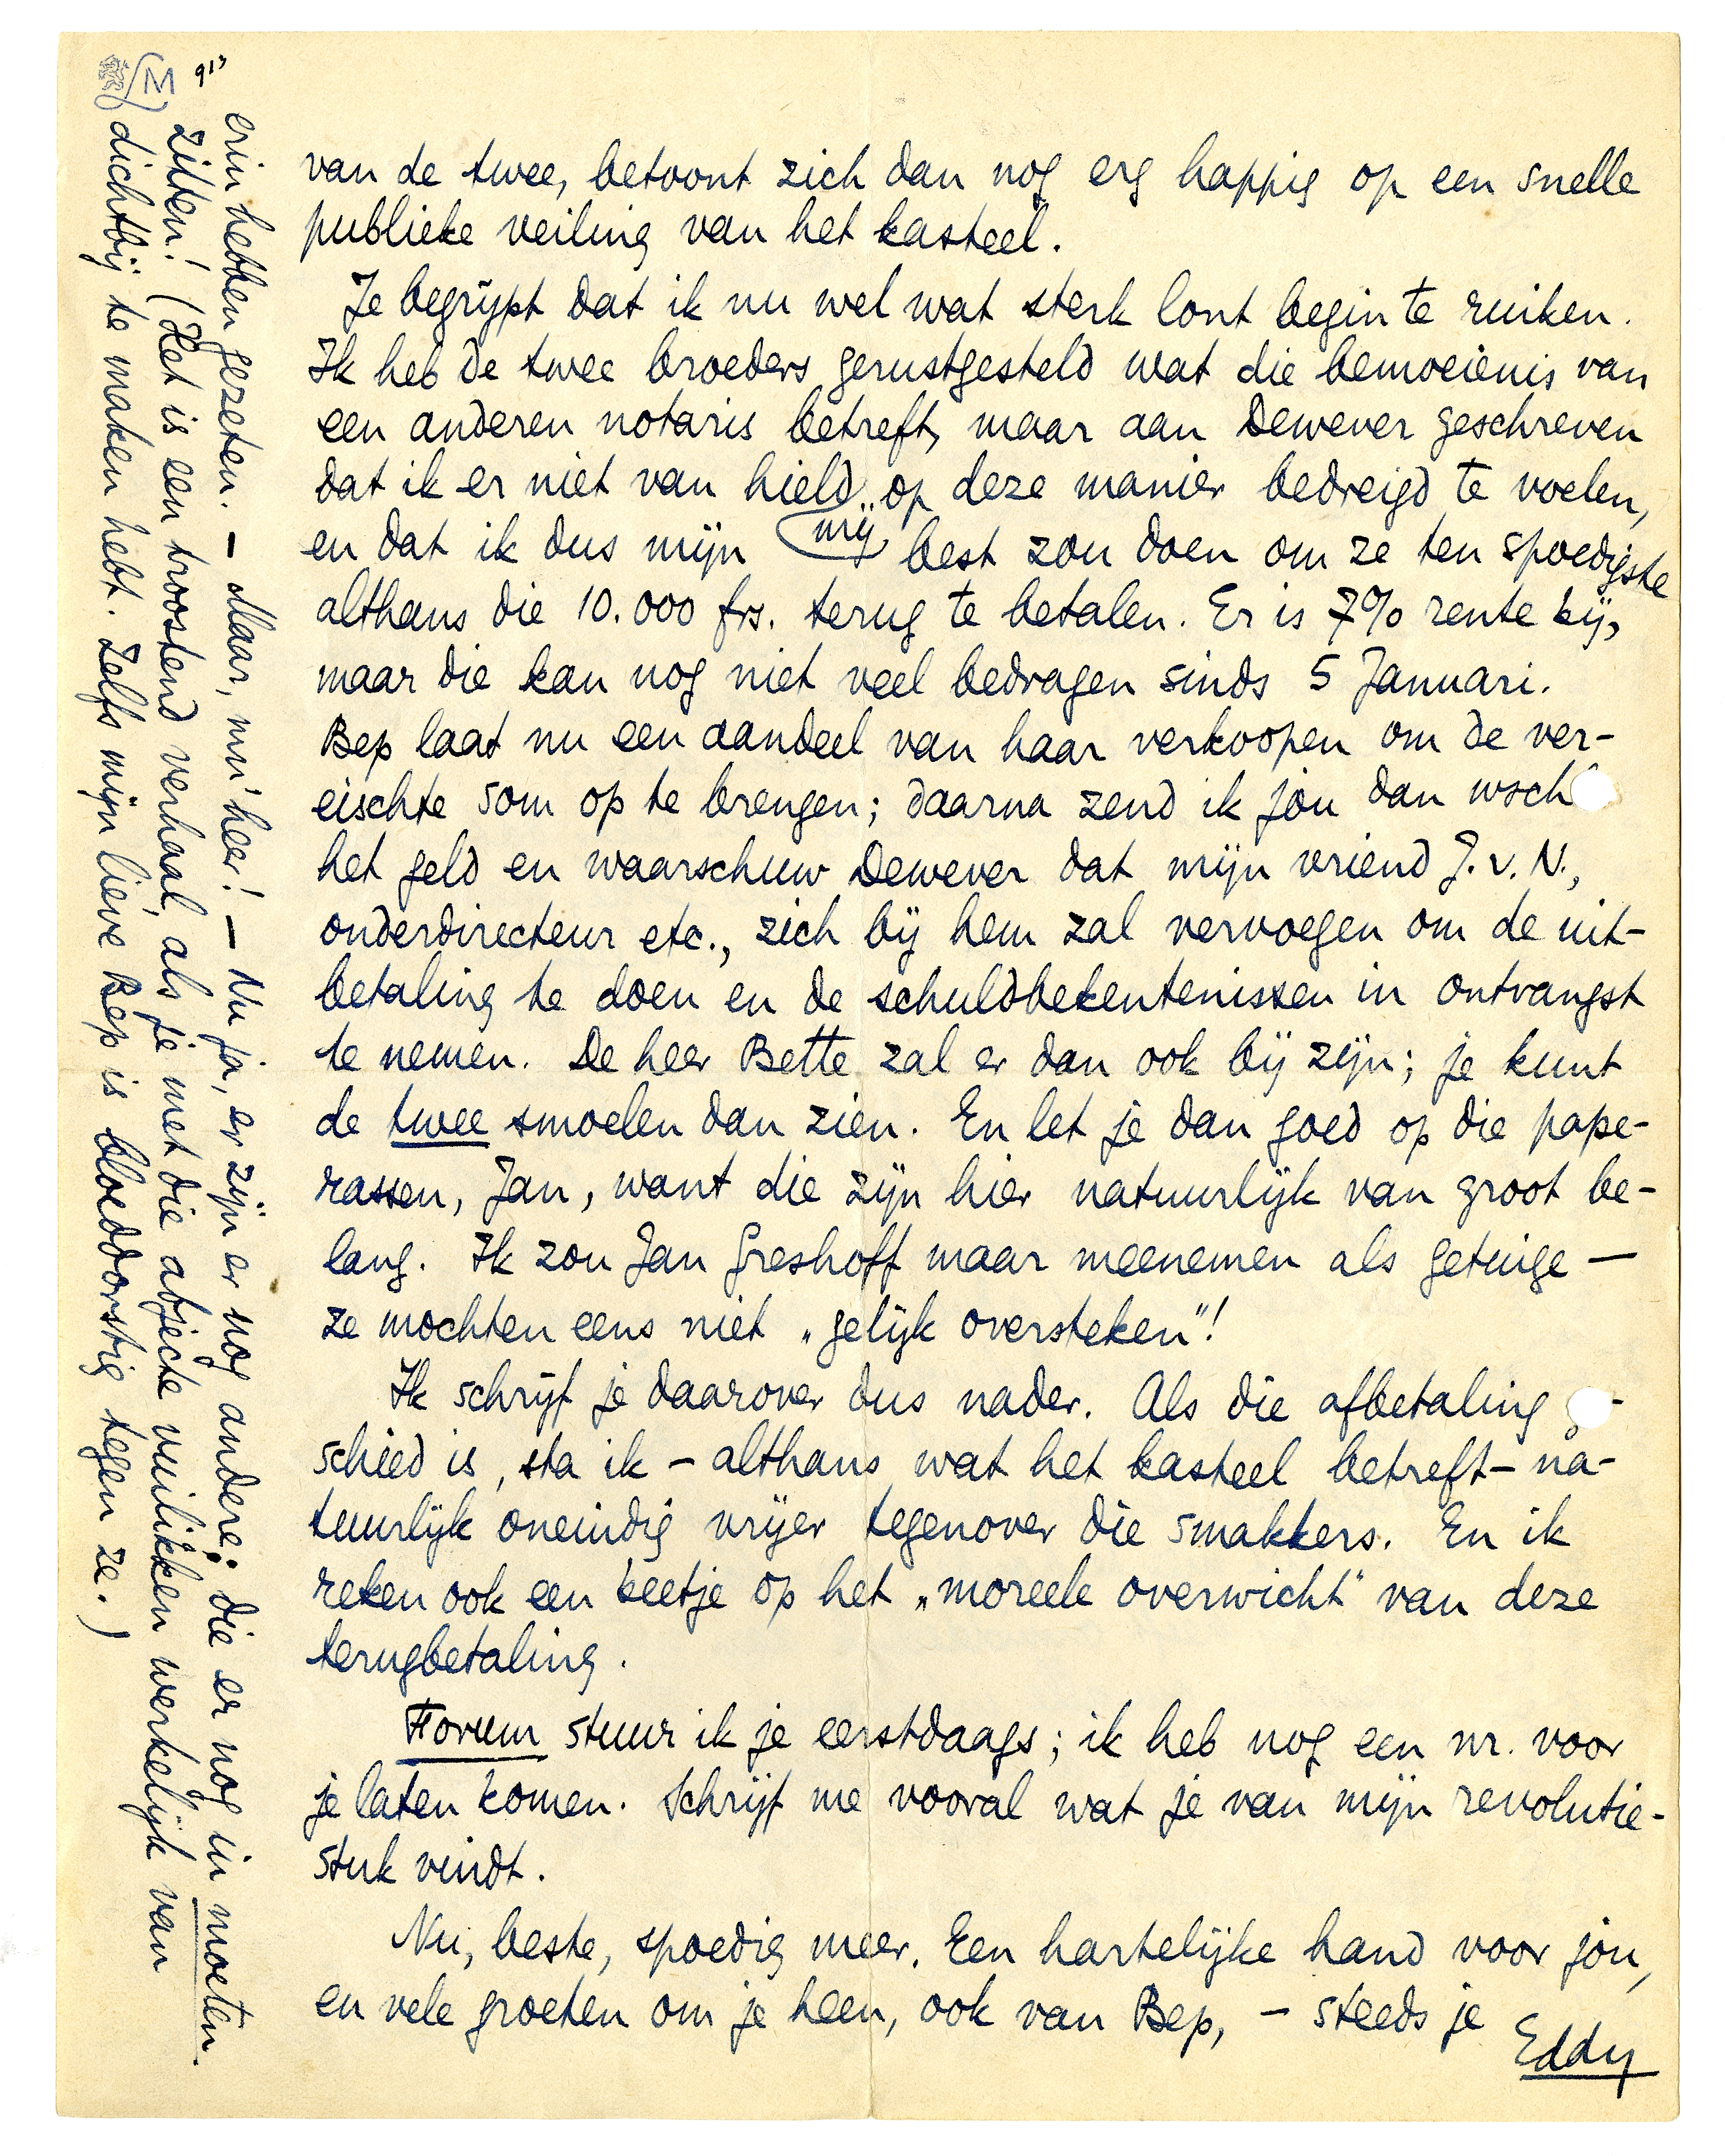 van de twee, betoont zich dan nog erg happig op een snelle
publieke veiling van het kasteel.
Je begrijpt dat ik nu wel wat sterk lont begin te ruiken.
Ik heb de twee broeders gerustgesteld wat die bemoeienis van
een anderen notaris betreft, maar aan Dewever geschreven
dat ik er niet van hield mij op deze manier bedreigd te voelen,
en dat ik dus mijn best zou doen om ze ten spoedigste
althans die 10.000 frs. terug te betalen. Er is 7% rente bij,
maar die kan nog niet veel bedragen sinds 5 Januari.
Bep laat nu een aandeel van haar verkoopen om de ver-
eischte som op te brengen; daarna zend ik jou dan wsch
het geld en waarschuw Dewever dat mijn vriend J. v. N.,
onderdirecteur etc., zich bij hem zal vervoegen om de uit-
betaling te doen en de schuldbekentenissen in ontvangst
te nemen. De heer Bette zal er dan ook bij zijn; je kunt
de twee smoelen dan zien. En let je dan goed op die pape-
rassen, Jan, want die zijn hier natuurlijk van groot be-
lang. Ik zou Jan Greshoff maar meenemen als getuige —
ze mochten eens niet „gelijk oversteken"!
Ik schrijf je daarover dus nader. Als die afbetaling -
schied is, sta ik – althans wat het kasteel betreft – na-
tuurlijk oneindig vrijer tegenover die smakkers. En ik
reken ook een beetje op het „moreele overwicht" van deze
terugbetaling.
Forum stuur ik je eerstdaags; ik heb nog een nr. voor
je laten komen. Schrijf me vooral wat je van mijn revolutie-
stuk vindt.
Nu, beste, spoedig meer. Een hartelijke hand voor jou,
en vele groeten om je heen, ook van Bep, – steeds je
Eddy
erin hebben gezeten. – Maar, mn' heer! – Nu ja, er zijn er nog andere: die er nog in moeten
zitten! (Het is een troostend verhaal, als je met die abjecte vuilikken werkelijk van
dichtbij te maken hebt. Zelfs mijn lieve Bep is bloeddorstig tegen ze.)
M 913